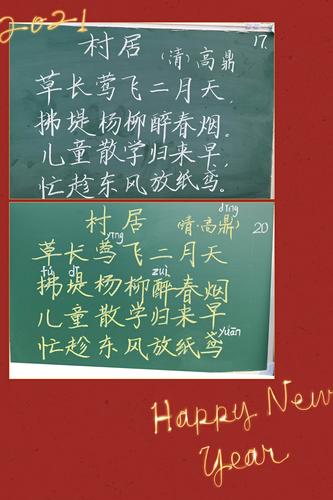 2021
17.
村居
(清)高鼎
草长莺飞二月天,
拂堤杨柳醉春烟。
儿童散学归来早,
忙趁东风放纸鸢。
dǐng
村居 (清·高鼎) 20
yīng
草长莺飞二月天
fú dī zuì
拂堤杨柳醉春烟
儿童散学归来早
yuān
忙趁东风放纸鸢
Happy New
Year